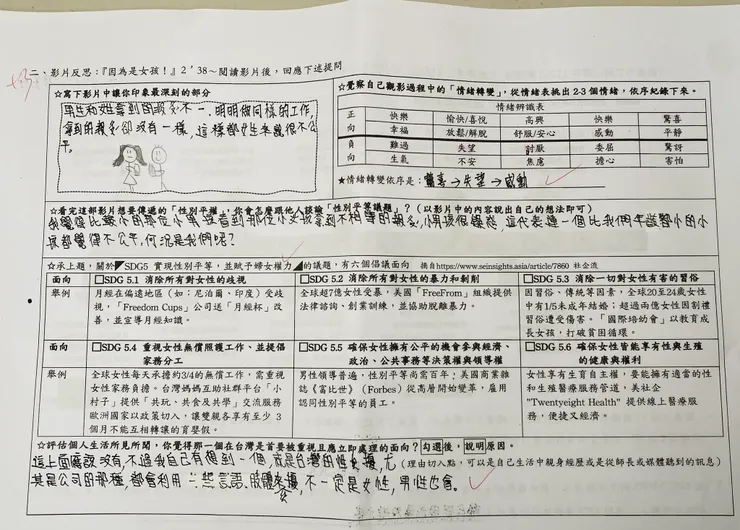 二、影片反思:『因為是女孩!』2'38~閱讀影片後,回應下述提問
☆寫下影片中讓你印象最深刻的部分
男生和女生拿到的報酬不一,明明做同樣的工作,
拿到的報酬卻沒有一樣,這樣對女生來說很不公
平。
☆覺察自己觀影過程中的「情緒轉變」,從情緒表挑出 2-3 個情緒,依序紀錄下來。
情緒辨識表
正向 快樂 愉快/喜悅 高興 快樂 驚喜
幸福 放鬆/解脫 舒服/安心 感動 平靜
負向 難過 失望 討厭 委屈 驚訝
生氣 不安 焦慮 擔心 害怕
★情緒轉變依序是:驚喜→失望→感動
☆看完這部影片想要傳遞的「性別平權」,你會怎麼跟人談論「性別平等議題」?(以影片中的內容說出自己的想法即可)
我覺得比較小的那位小男孩看到那位小女孩拿到不相等的報酬,小男孩很疑惑,這代表連一個比我們年齡小的小
孩都覺得不公平,何況是我們呢?
☆承上題,關於 SDG5 實現性別平等,並賦予婦女權力 的議題,有六個倡議面向 摘自https://www.seinsights.asia/article/7860 社企流
面向 □SDG 5.1 消除所有對女性的歧視 □SDG 5.2 消除所有對女性的暴力和剝削 □SDG 5.3 消除一切對女性有害的習俗
舉例 月經在偏遠地區(如:尼泊爾、印度)受歧
視,「Freedom Cups」公司送「月經杯」改
善,並宣導月經知識。
全球超7億女性受暴,美國「FreeFrom」組織提供
法律諮詢、創業訓練,並協助脫離暴力。
因習俗、傳統等因素,全球20至24歲女性
中有1/5未成年結婚;超過兩億女性因割禮
習俗遭受傷害。「國際培幼會」以教育成
長女孩,打破貧困循環。
面向 □SDG 5.4 重視女性無償照護工作、並提倡
家務分工
□SDG 5.5 確保女性擁有公平的機會參與經濟、
政治、公共事務等決策權與領導權
□SDG 5.6 確保女性皆能享有性與生殖
的健康與權利
舉例 全球女性每天承擔約3/4的無償工作,需重視
女性家務負擔。台灣媽媽互助社群平台「小
村子」提供「共玩、共食及共學」交流服務
歐洲國家以政策切入,讓雙親各享有至少 3
個月不能互相轉讓的育嬰假。
男性領導普遍,性別平等尚需百年,美國商業雜
誌《富比世》(Forbes)從高層開始變革,雇用
認同性別平等的員工。
女性享有生育自主權,要能擁有適當的性
和生殖醫療服務管道,美社企
"Twentyeight Health" 提供線上醫療服
務,便捷又經濟。
☆評估個人生活所見所聞,你覺得那一個在台灣是首要被重視且應立即處理的面向?勾選後,說明原因。
這上面應該沒有,不過我自己有想到一個,就是台灣的性騷擾,尤
(理由切入點,可以是自己生活中親身經歷或是從師長或媒體聽到的訊息)
其是公司的那種,都會利用一些言語、肢體來騷擾,不一定是女性,男性也會。